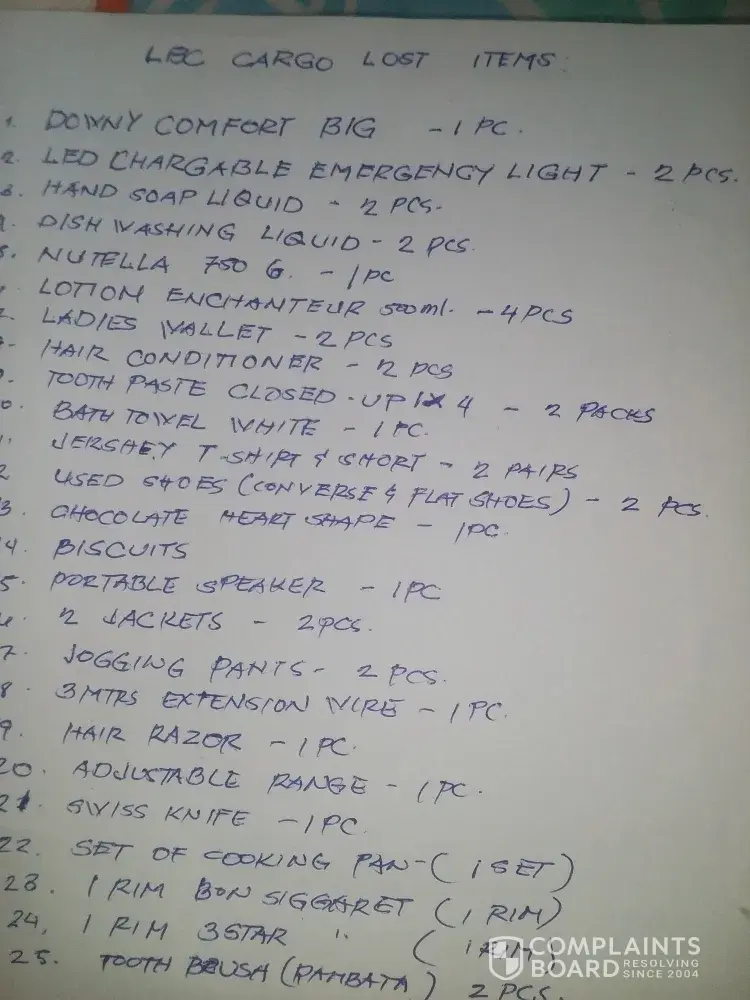 LBC CARGO LOST ITEMS:
1. DOWNY COMFORT BIG - 1 PC.
2. LED CHARGABLE EMERGENCY LIGHT - 2 PCS.
3. HAND SOAP LIQUID - 2 PCS.
4. DISH WASHING LIQUID - 2 PCS.
5. NUTELLA 750 G. - 1 PC
LOTION ENCHANTEUR 500ml. - 4 PCS
7. LADIES WALLET - 2 PCS
HAIR CONDITIONER - 2 PCS
9. TOOTH PASTE CLOSED-UP 1X4 - 2 PACKS
0. BATH TOWEL WHITE - 1 PC.
1. JERSHEY T-SHIRT & SHORT - 2 PAIRS
2 USED SHOES (CONVERSE & FLAT SHOES) - 2 PCS.
3. CHOCOLATE HEART SHAPE - 1PC.
4. BISCUITS
5. PORTABLE SPEAKER - 1 PC
2 JACKETS - 2 PCS.
7. JOGGING PANTS - 2 PCS.
8. 3 MTRS EXTENSION WIRE - 1 PC.
9. HAIR RAZOR - 1 PC.
20. ADJUSTABLE RANGE - 1 PC.
21. SWISS KNIFE - 1 PC.
22. SET OF COOKING PAN - (1 SET)
23. 1 RIM BON SIGGARET (1 RIM)
24, 1 RIM 3 STAR " (1 RIM)
25. TOOTH BRUSH (PAMBATA) 2 PCS.
COMPLAINTS
BOARD RESOLVING SINCE 2004